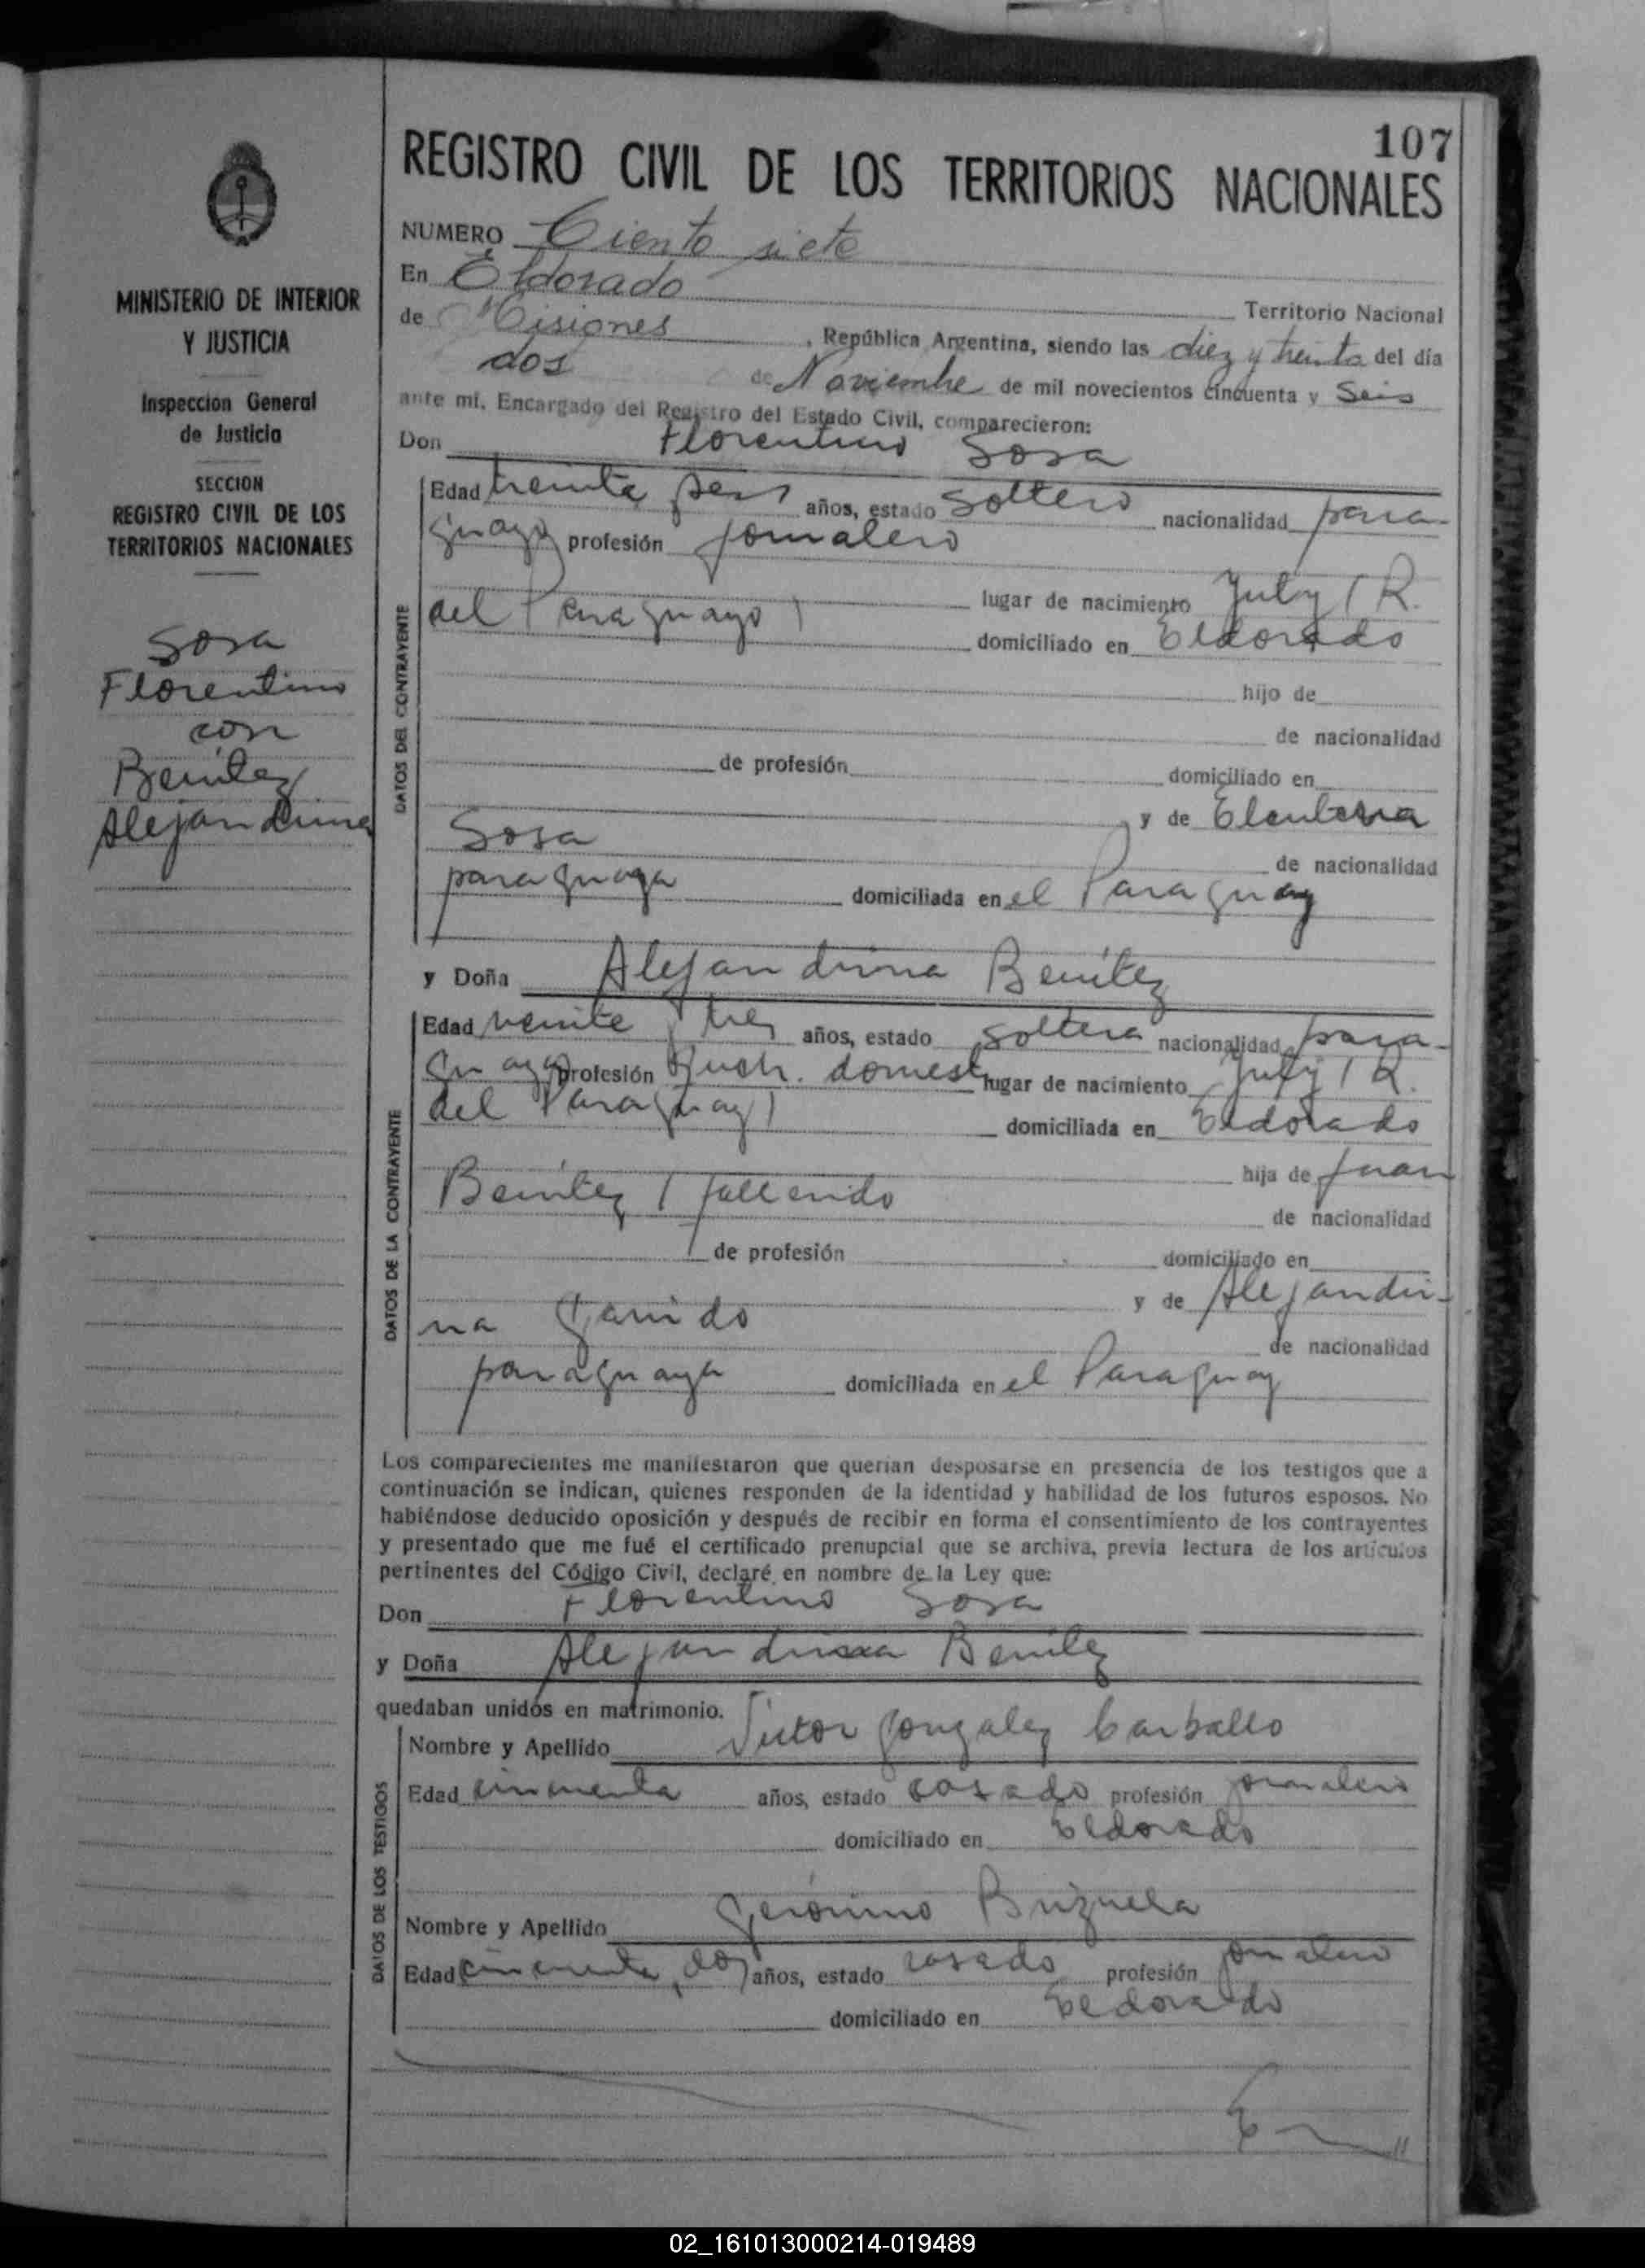 107
REGISTRO CIVIL DE LOS TERRITORIOS NACIONALES
MINISTERIO DE INTERIOR
Y JUSTICIA
Inspeccion General
de Justicia
SECCION
REGISTRO CIVIL DE LOS
TERRITORIOS NACIONALES
Sosa
Florentino
con
Benítez
Alejandrina
NUMERO Ciento siete
En Eldorado Territorio Nacional
de Misiones, República Argentina, siendo las diez y treinta del día
dos de Noviembre de mil novecientos cincuenta y Seis
ante mí, Encargado del Registro del Estado Civil, comparecieron:
Don Florentino Sosa
DATOS DEL CONTRAYENTE
Edad treinta seis años, estado soltero nacionalidad para-
guayo profesión jornalero
lugar de nacimiento July (R.
del Paraguayo) domiciliado en Eldorado
hijo de
de nacionalidad
de profesión domiciliado en
y de Eleuteria
Sosa de nacionalidad
paraguaya domiciliada en el Paraguay
y Doña Alejandrina Benítez
DATOS DE LA CONTRAYENTE
Edad veinte y tres años, estado soltera nacionalidad para-
guaya profesión Queh. domest lugar de nacimiento July (R.
del Paraguay) domiciliada en Eldorado
hija de Juan
Benítez (fallecido de nacionalidad
de profesión domiciliado en
y de Alejandri-
na Garrido de nacionalidad
paraguaya domiciliada en el Paraguay
Los comparecientes me manifestaron que querían desposarse en presencia de los testigos que a
continuación se indican, quienes responden de la identidad y habilidad de los futuros esposos. No
habiéndose deducido oposición y después de recibir en forma el consentimiento de los contrayentes
y presentado que me fué el certificado prenupcial que se archiva, previa lectura de los artículos
pertinentes del Código Civil, declaré en nombre de la Ley que:
Don Florentino Sosa
y Doña Alejandrina Benítez
quedaban unidos en matrimonio.
DATOS DE LOS TESTIGOS
Nombre y Apellido Victor Gonzalez Carballo
Edad cincuenta años, estado casado profesión jornalero
domiciliado en Eldorado
Nombre y Apellido Gerónimo Brizuela
Edad cincuenta, dos años, estado casado profesión jornalero
domiciliado en Eldorado
02_161013000214-019489